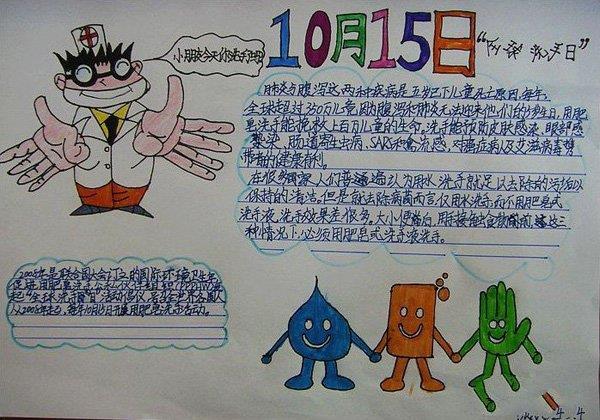 小朋友今天你洗手了吗
10月15日
"全球洗手日"
肺炎与腹泻这两种疾病是五岁以下儿童死亡原因,每年,
全球超过350万儿童因为腹泻和肺炎无法迎来他们的5岁生日,用肥
皂洗手能挽救上百万儿童的生命,洗手能预防皮肤感染,眼部感
染,肠道寄生虫病,SARS和禽流感,对癌症病人及艾滋病毒携
带者的健康有利。
在很多国家人们普遍认为用水洗手就足以去除的污垢以
保持的清洁。但是能去除病菌而言仅用水洗手而不用肥皂或
洗手液,洗手效果差很多。大小便后,用接触食物前这三
种情况下,必须用肥皂或洗手液洗手。
2008年是联合国大会订立的国际环境卫生年
促进用肥皂洗手公私伙伴组织(PPPHW)发
起"全球洗手日"活动倡议,号召世界各国人
从2008年起,每年10月15日开展用肥皂洗手活动。